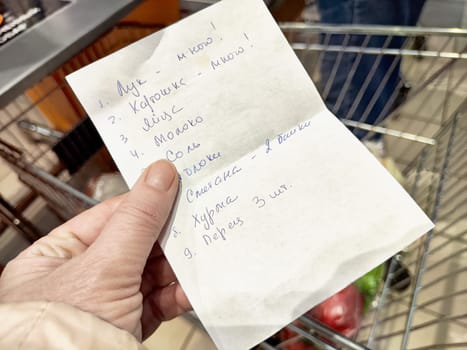 1. Лук - много!
2. Картошка - много!
3 Яйца
4. Молоко
Соль
Яблоки
Сметана - 2 банки
8. Хурма
9. Перец 3 шт.